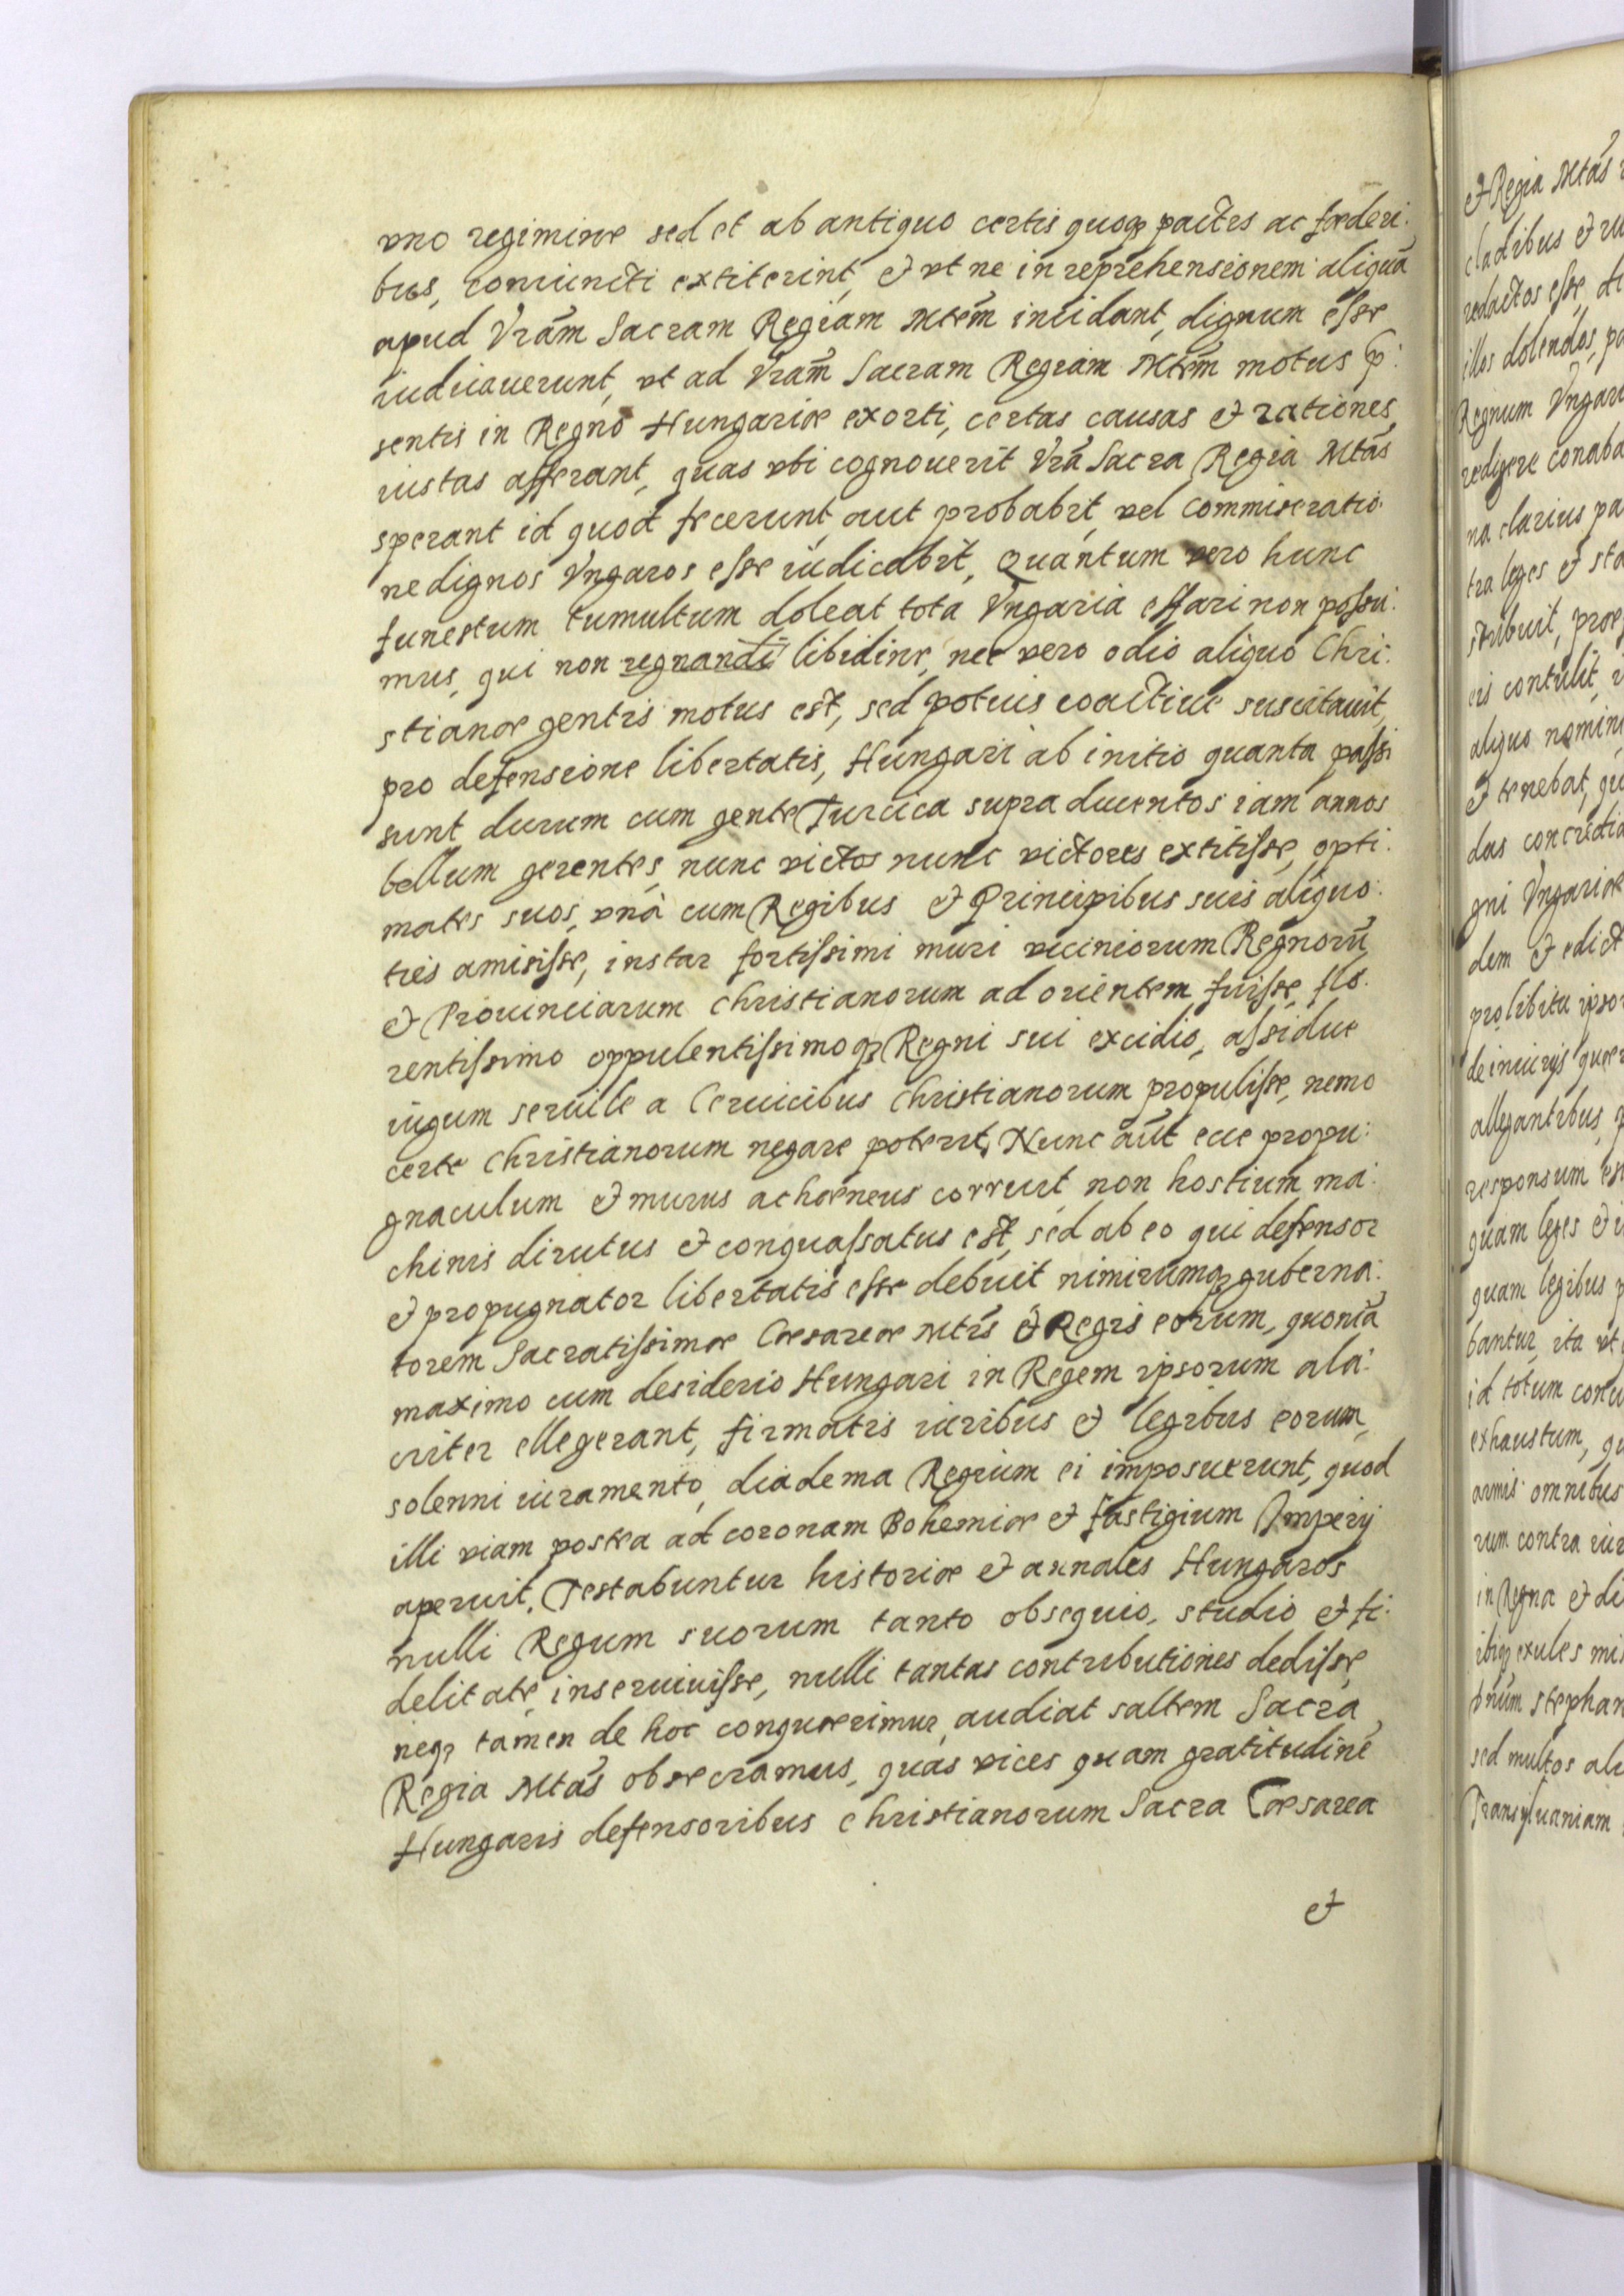 vno regimine sed et ab antiquo certis quoq; pactis ac fœderi:
bus, coniuncti extiterint, et vt ne in reprehensionem aliquã
apud Vrãm Sacram Regiam Mtẽm incidant, dignum esse
iudicauerunt, vt ad Vrãm Sacram Regiam Mtẽm motus p:
sentis in Regno Hungariæ exorti, certas causas et rationes
iustas afferant, quas vbi cognouerit Vrã Sacra Regia Mtãs
sperant id quod fecerunt, aut probabit, vel commiseratio:
ne dignos Vngaros esse iudicabit, Quantum vero hunc
funestum tumultum doleat tota Vngaria effari non possu:
mus, qui non regnandi libidine, nec vero odio aliquo Chri:
stianæ gentis motus est, sed potuis coactiue suscitauit,
pro defensione libertatis, Hungari ab initio quanta passi
sunt, durum cum gente Turcica supra ducentos iam annos
bellum gerentes, nunc victos nunc victores extitisse, opti:
mates suos, vnà cum Regibus et Principibus suis aliquo:
ties amisisse, instar fortissimi muri viciniorum Regnorũ
et Prouinciarum Christianorum ad orientem fuisse, flo:
rentissimo oppulentissimoq; Regni sui excidio, assidue
iugum seruile a Ceruicibus Christianorum propulisse, nemo
certe Christianorum negare poterit, Nunc aũt ecce propu:
gnaculum et murus achæneus corruit, non hostium ma:
chinis dirutus et conquassatus est, sed ab eo qui defensor
et propugnator libertatis esse debuit nimirumq; guberna:
torem Sacratissimæ Cæsareæ Mtis et Regis eorum, quoniã
maximo cum desiderio Hungari in Regem ipsorum ala:
criter ellegerant, firmatis iuribus et legibus eorum,
solenni iuramento, diadema Regium ei imposuerunt, quod
illi viam postea ad coronam Bohemiæ et fastigium Imperij
aperuit, Testabuntur historiæ et annales Hungaros
nulli Regum suorum tanto obsequio, studio et fi:
delitate, inseruiuisse, nulli tantas contributiones dedisse,
neq; tamen de hoc conquærimur, audiat saltem Sacra
Regia Mtãs obsecramus, quas vices quam gratitudinẽ
Hungaris defensoribus Christianorum Sacra Cæsarea
et
et Regia Mtãs
cladibus et
redactos esse,
illos dolendos,
Regnum
redigere
na clarius
tra leges et
stribuit,
eis contulit,
aliquo
et tenebat,
das
gni Vngariæ
dem et
pro libitu
de iniurijs
allegantibus,
responsum
quam leges et
quam legibus
bantur, ita vt
id totum
exhaustum,
armis omnibus
rum contra
in Regna et
ibiq; exules
sed multos
Transyluaniam